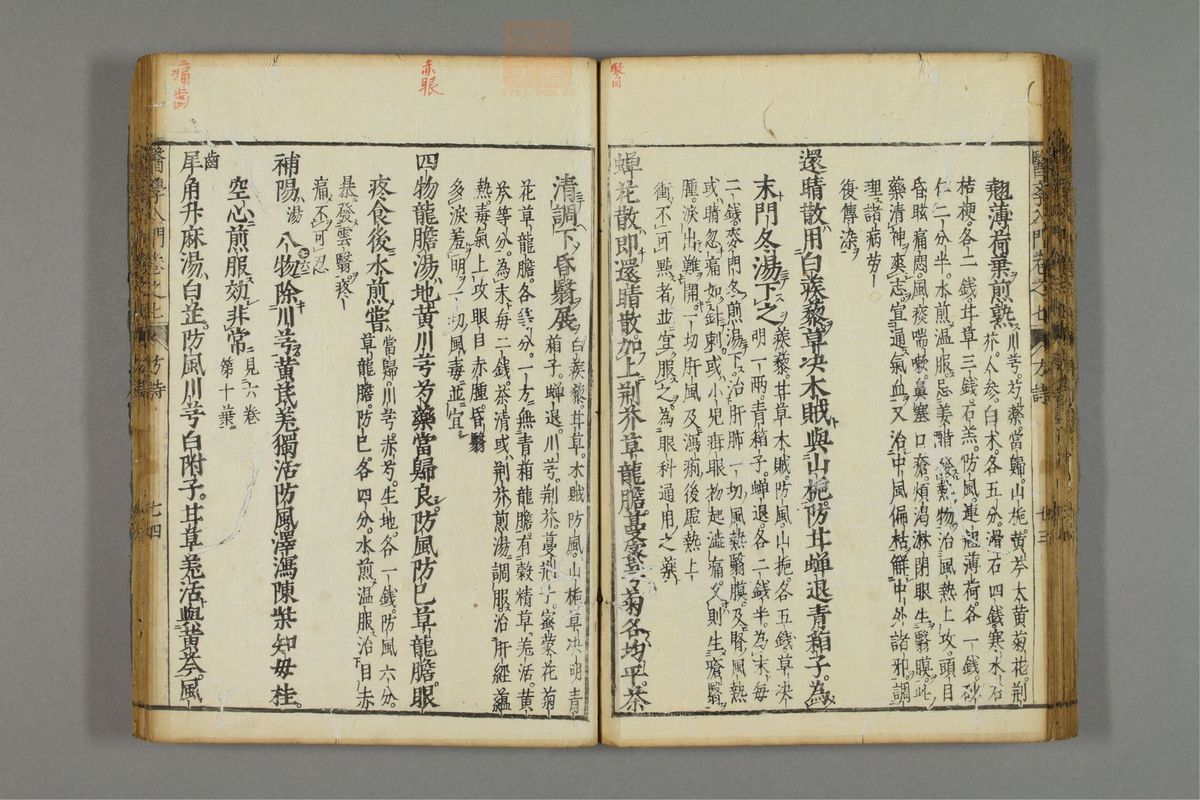 翹薄荷葉煎熟
川芎。芍藥。當歸。山梔。黃芩大黃菊花。荆
芥。人參。白朮。各五分。滑石四錢。寒水石
桔梗。各二錢。甘草三錢。石羔。防風。連翹薄荷。各一錢。砂
仁二分半。水煎温服忌姜醋發熱物治風熱上攻。頭目
昏眩痛悶。風痰喘嗽。鼻塞口瘡。煩渴淋閉眼生翳膜。此
藥清神爽志宜通氣血又治中風偏枯解中外諸邪調
理諸病勞
復傳染
還晴散用白蒺藜草决木賊與山梔防甘蟬退青葙子。為
末門冬湯下之
蒺藜。甘草木賊。防風。山梔各五錢草决
明一兩。青箱子。蟬退。各二錢半。為末每
二錢。麥門冬煎湯下。治肝肺一切風熱翳膜。及腎風熱
或睛忽痛如針刺。或小兒疳眼初起澁痛。久則生瘡翳
腫。淚出難開。一切肝風及瀉痢後虛熱上
衝不可㸃者並宜服之為眼科通用之藥
蟬花散即還晴散加上荆芥草龍膽。蔓蜜芎菊各均平。茶
清調下昏翳展
白蒺。藜。甘草。木賊防風。山梔草决明青
箱子。蟬退。川芎。荆芥蔓荊子。蜜蒙花菊
花草龍膽。各等分。一方無青箱龍膽。有穀精草。羌活黃
芩等分。為末每二錢茶清或荆芥煎湯調服治肝經蘊
熱毒氣上攻眼目赤腫昏翳
多淚羞明一切風毒並宜
赤眼
四物龍膽湯地黃川芎芍藥當歸良防風防巳草龍膽。眼
疼食後水煎嘗
當歸。川芎。赤芍。生地。各一錢。防風六分。
草龍膽。防巳各四分。水煎温服治目赤
暴發雲翳疼
痛不可忍
補陽湯八物除川芎黃芪羌獨活防風澤瀉陳柴知毋桂。
空心煎服効非常
見六卷
第十葉
痛齒
齒
犀角升麻湯白芷防風川芎白附子。甘草羌活與黃芩。風
醫學入門卷之七 方詩 七四